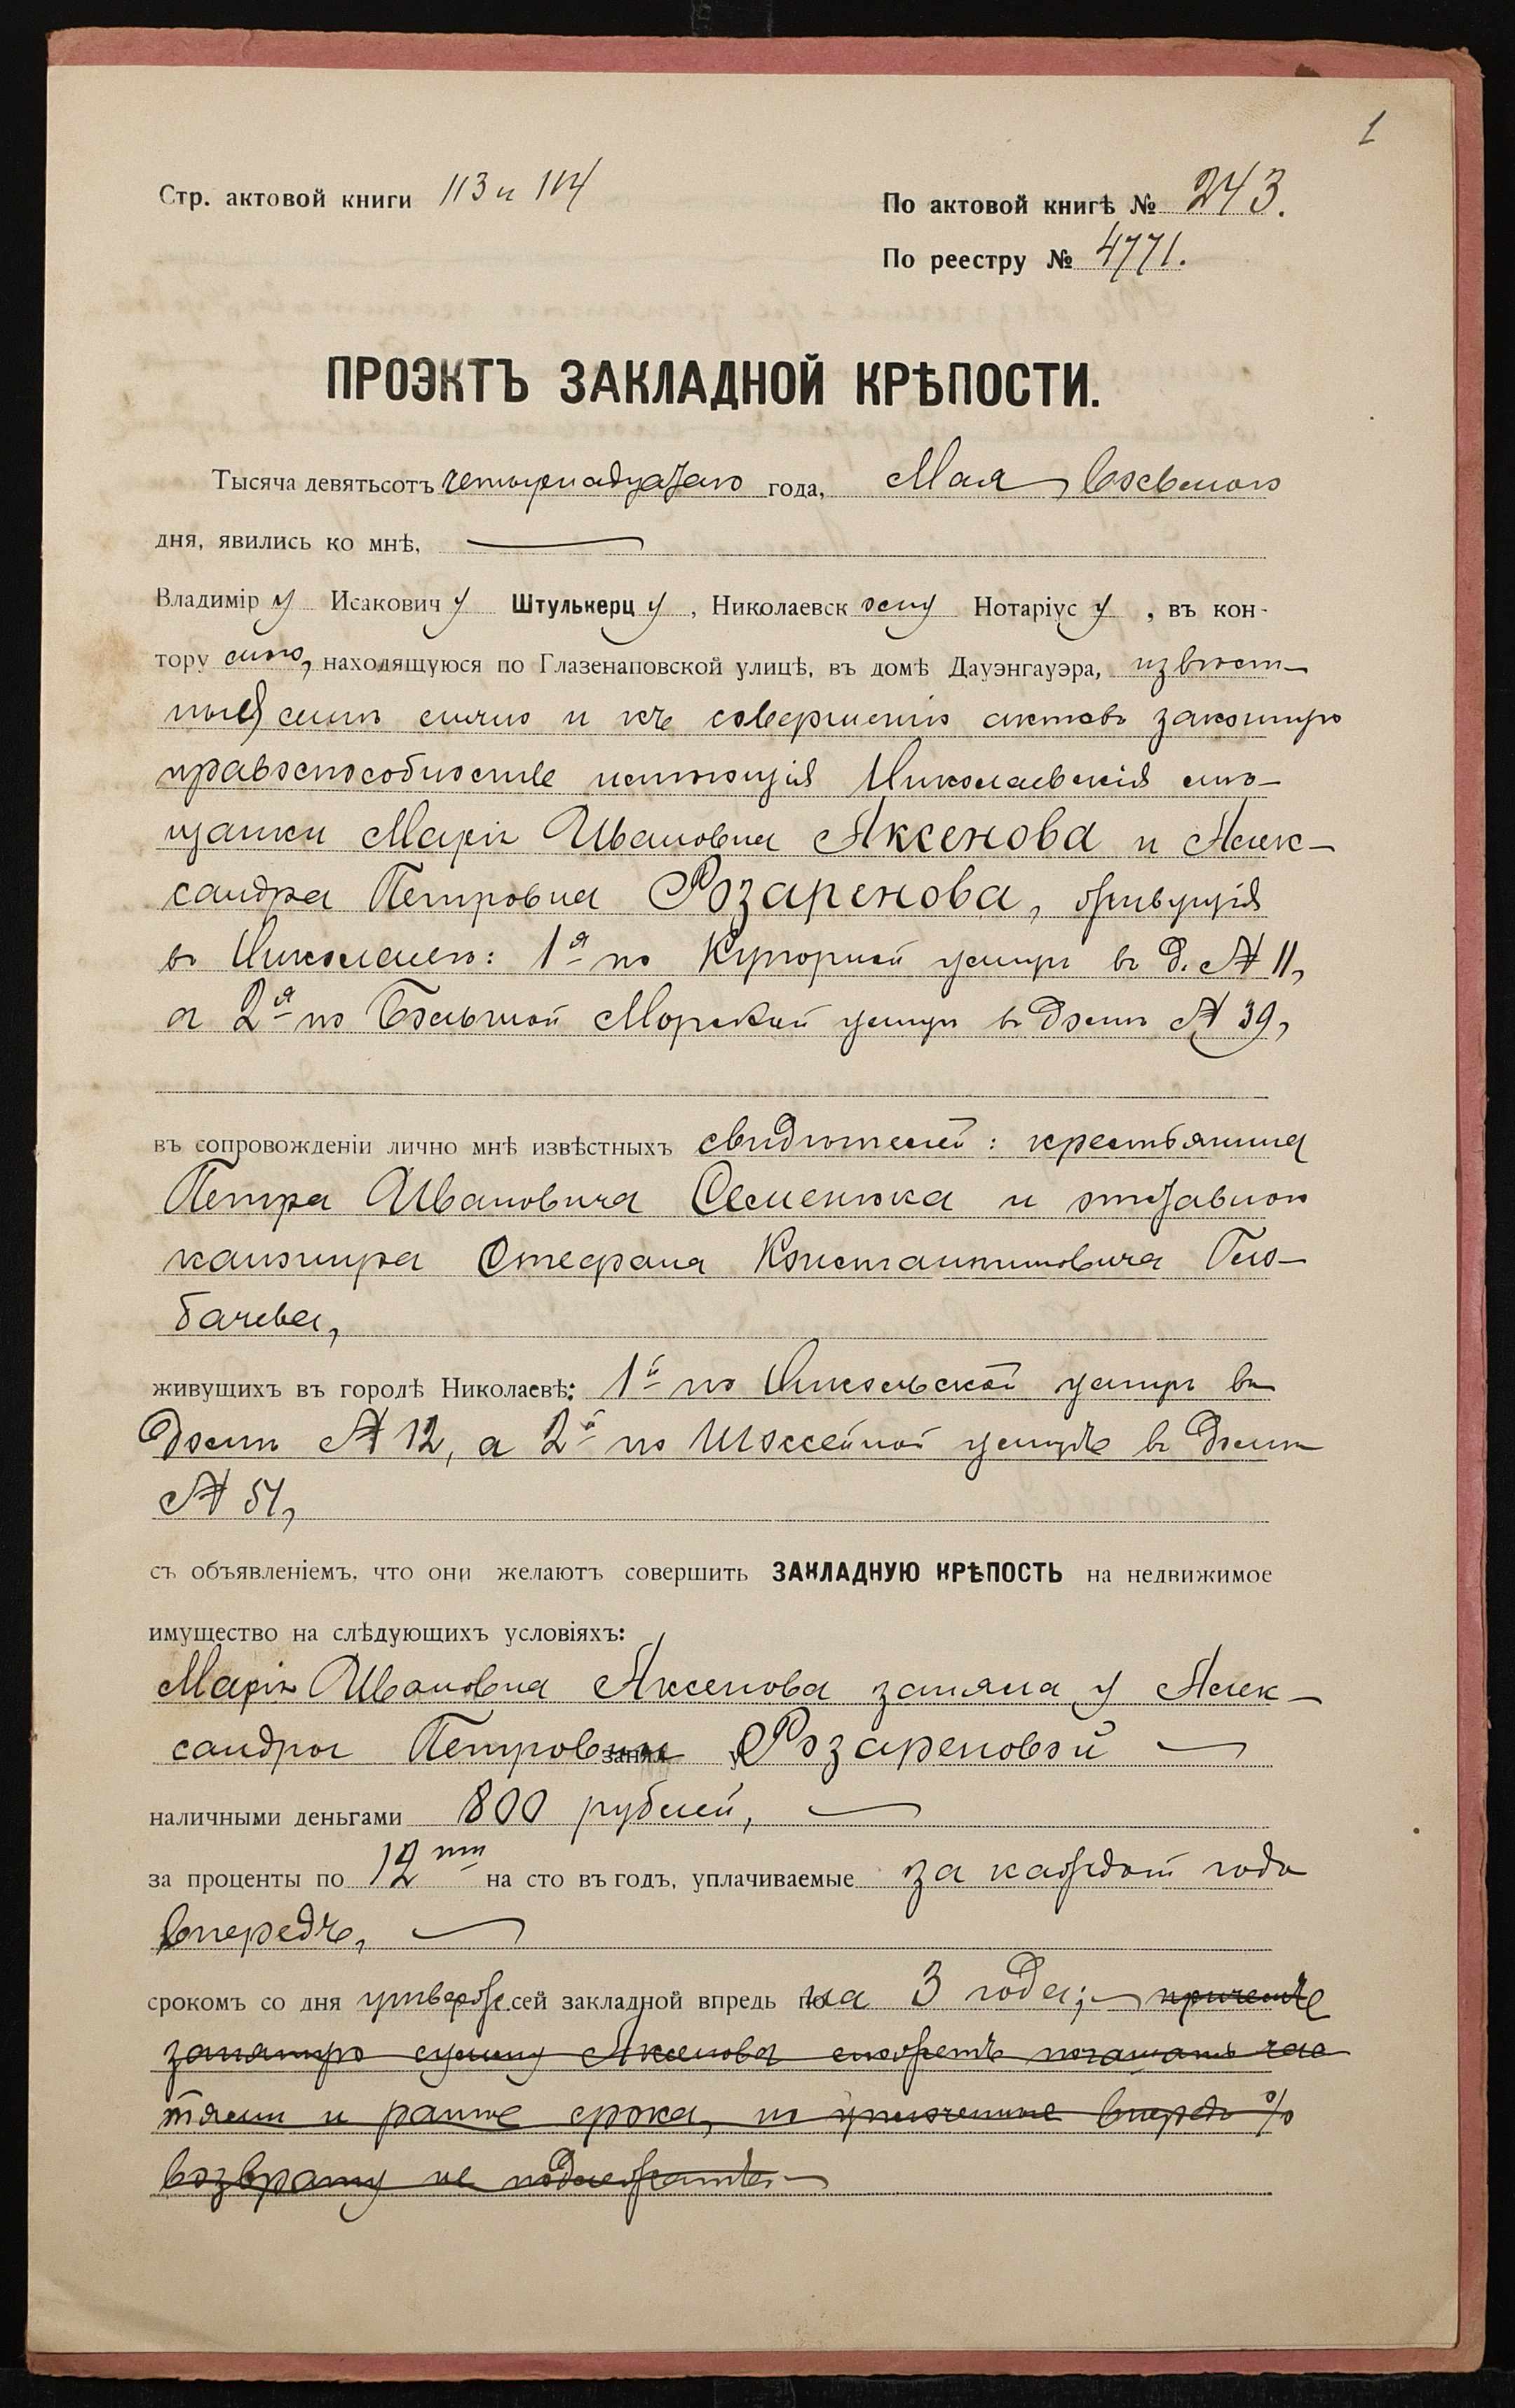 1
Стр. актовой книги 113 и 114
По актовой книгѣ № 243.
По реестру № 4771.
ПРОЭКТЪ ЗАКЛАДНОЙ КРѢПОСТИ.
Тысяча девятьсотъ четырнадцатаго года, Мая восьмого
дня, явились ко мнѣ,
Владимір у Исакович у Штулькерц у, Николаевск ому Нотаріус у, въ кон-
тору мою, находящуюся по Глазенаповской улицѣ, въ домѣ Дауэнгауэра, извѣст-
ныя мнѣ лично и къ совершенію актовъ законную
правоспособность имѣющія Николаевскія мѣ-
щанки Марія Ивановна Аксенова и Алек-
сандра Петровна Розаренова, живущія
въ Николаевѣ: 1я по Курьерной улицѣ въ д. № 11,
а 2я по Большой Морской улицѣ въ домѣ № 39,
въ сопровожденіи лично мнѣ извѣстныхъ свидѣтелей: крестьянина
Петра Ивановича Семенюка и отставного
канонира Стефана Константиновича Гло-
бачева,
живущихъ въ городѣ Николаевѣ: 1й по Никольской улицѣ въ
домѣ № 12, а 2й по Шоссейной улицѣ въ домѣ
№ 51,
съ объявленіемъ, что они желаютъ совершить ЗАКЛАДНУЮ КРѢПОСТЬ на недвижимое
имущество на слѣдующихъ условіяхъ:
Марія Ивановна Аксенова заняла у Алек-
сандры Петровны занял у Розареновой
наличными деньгами 800 рублей,
за проценты по 12ти на сто въ годъ, уплачиваемые за каждый годъ
впередъ,
срокомъ со дня утвержд. сей закладной впредь по на 3 года; причемъ
занятую сумму Аксенова можетъ погашать час
тями и ранѣе срока, но уплоченные впередъ %
возврату не подлежатъ.